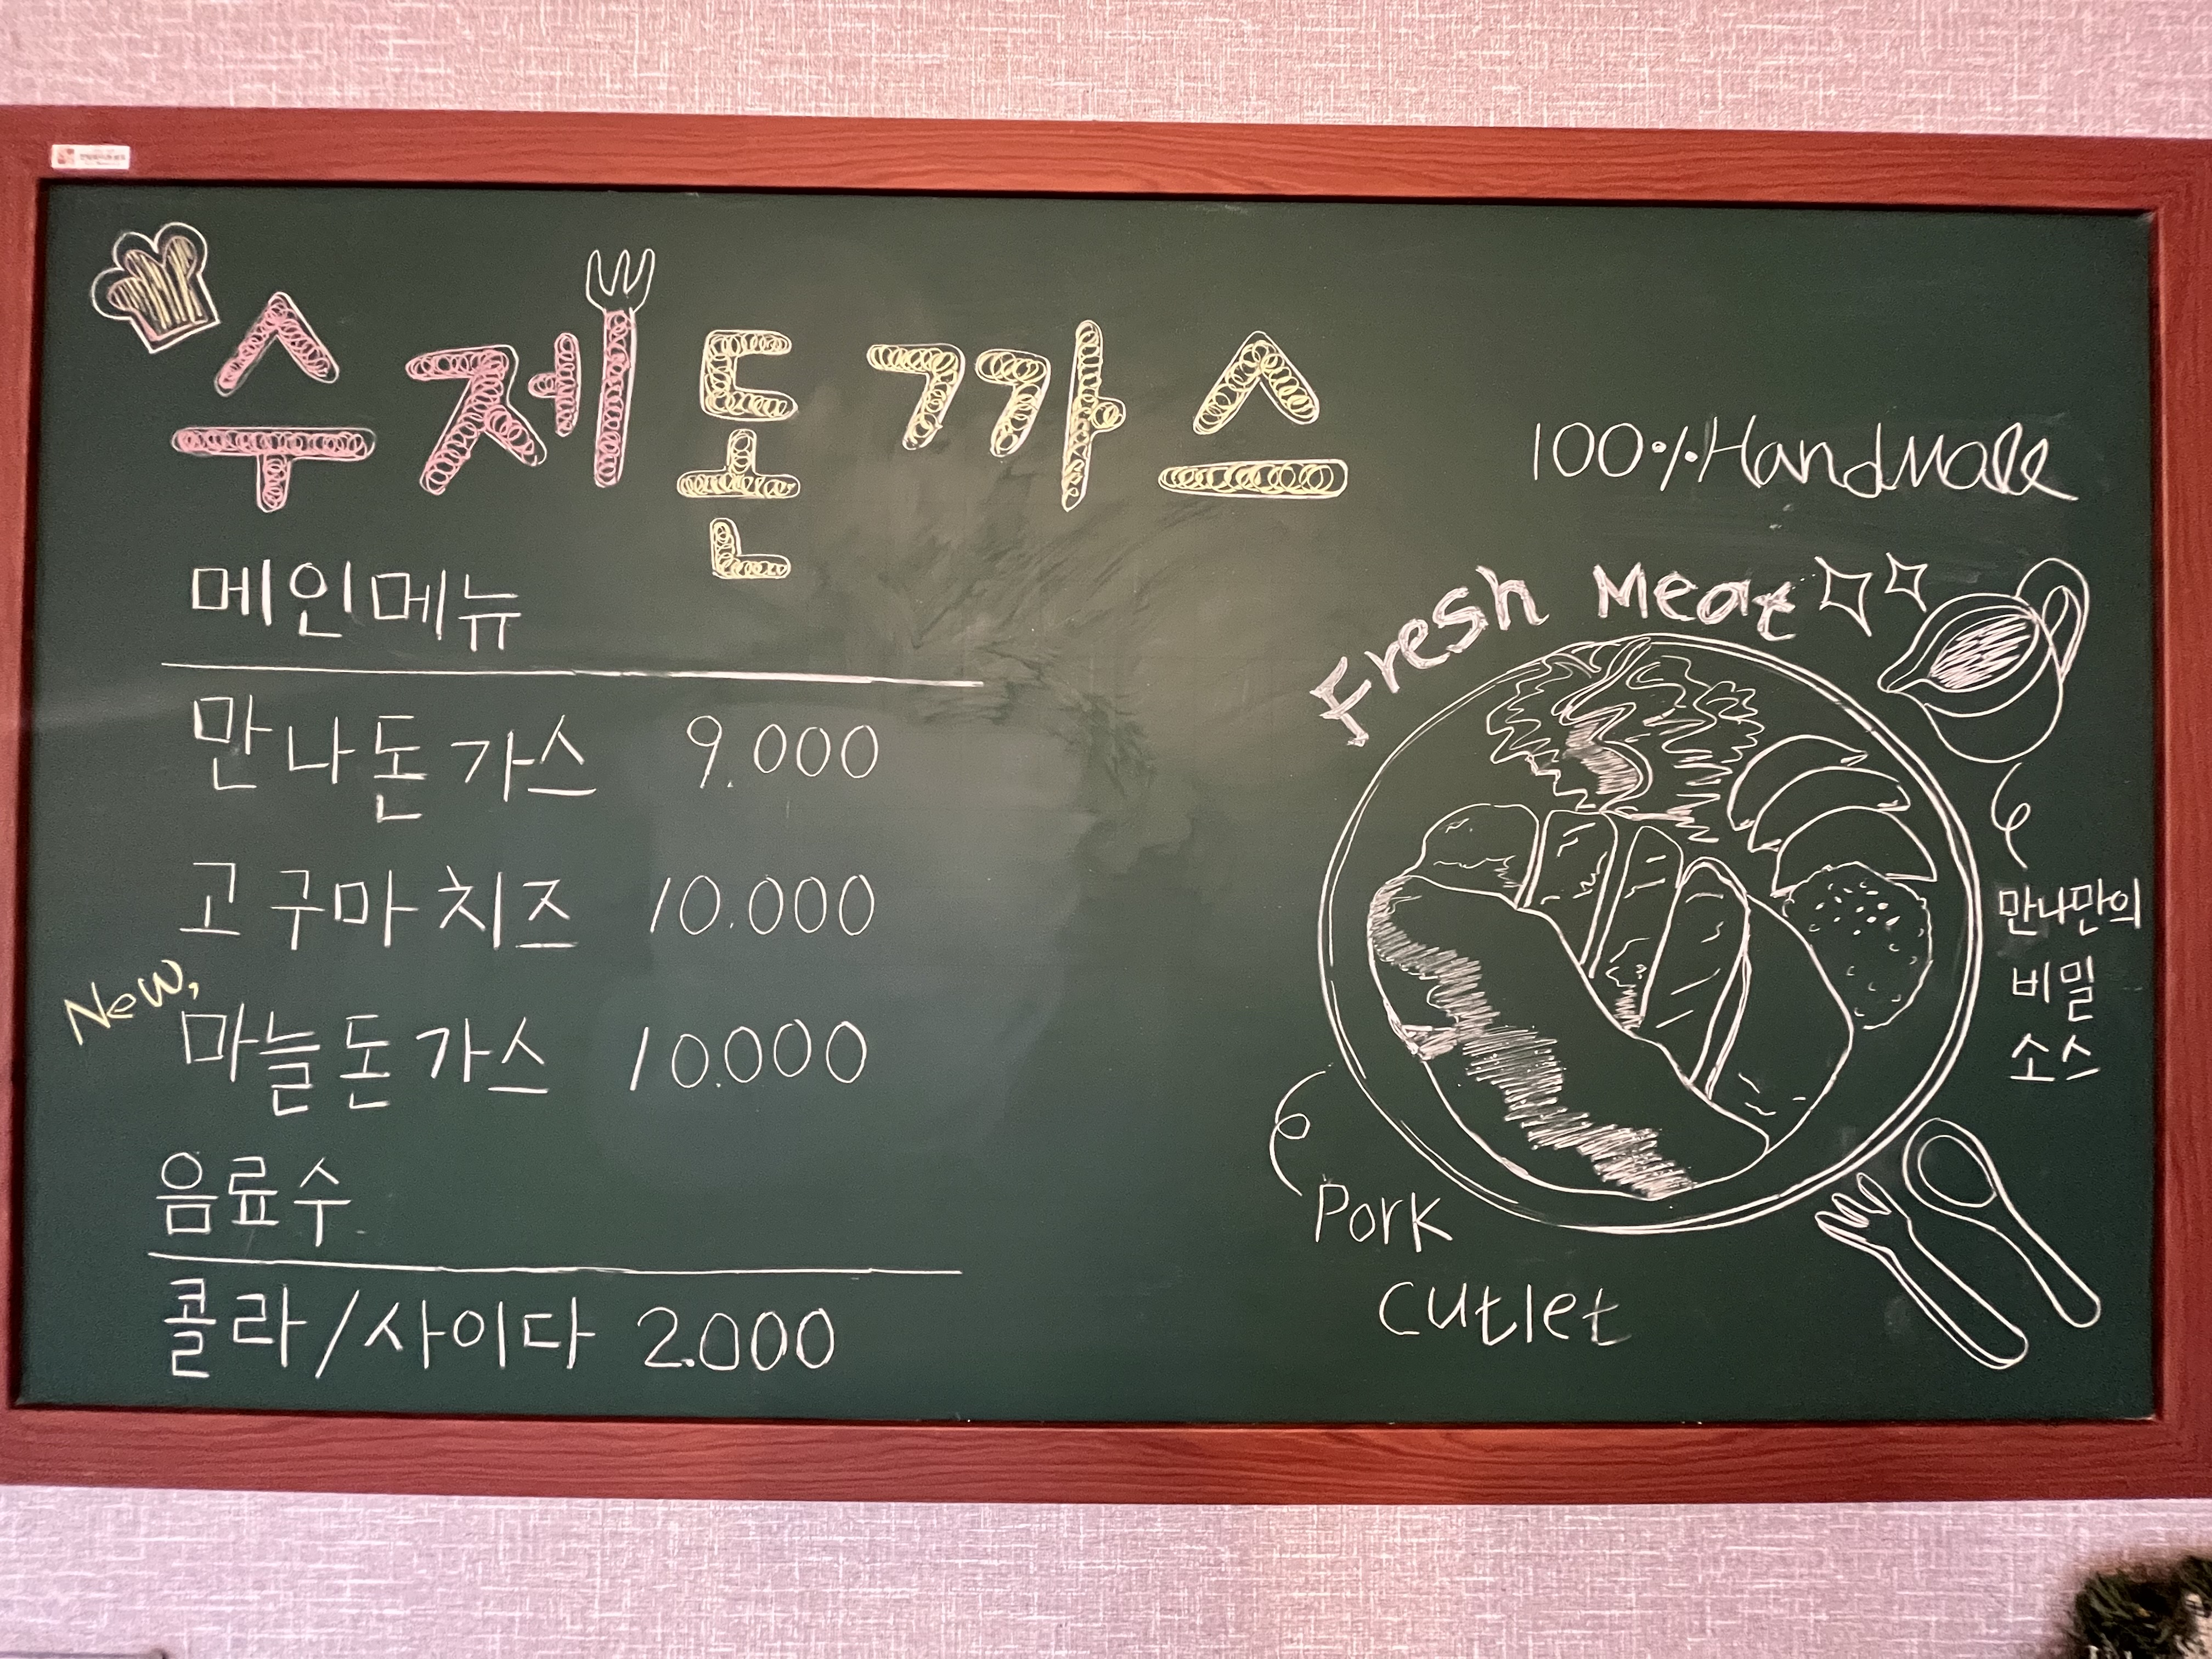 수제돈까스
100% HandMade
메인메뉴
만나돈가스 9.000
고구마치즈 10.000
New,
마늘돈가스 10.000
음료수
콜라/사이다 2.000
Fresh Meat
만나만의
비밀
소스
Pork
Cutlet